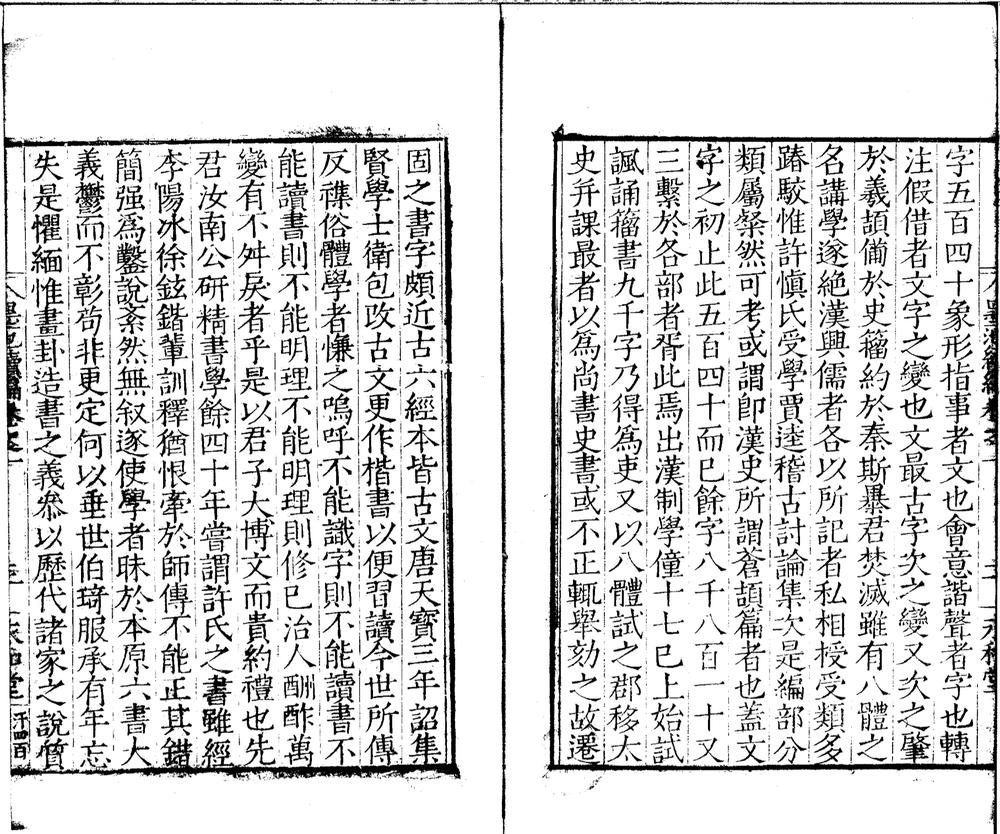 字五百四十象形指事者文也會意諧聲者字也轉
注假借者文字之變也文最古字次之變又次之肇
於羲頡備於史籀約於秦斯暴君焚滅雖有八體之
名講學遂絶漢興儒者各以所記者私相授受類多
踳駮惟許愼氏受學賈逵稽古討論集次是編部分
類屬粲然可考或謂卽漢史所謂蒼頡篇者也蓋文
字之初止此五百四十而已餘字八千八百一十又
三繫於各部者胥此焉出漢制學僮十七已上始試
諷誦籀書九千字乃得爲吏又以八體試之郡移太
史并課最者以爲尚書史書或不正輒舉劾之故遷
固之書字頗近古六經本皆古文唐天寶三年詔集
賢學士衛包改古文更作楷書以便習讀今世所傳
反襍俗體學者慊之嗚呼不能識字則不能讀書不
能讀書則不能明理不能明理則修已治人酬酢萬
變有不舛戾者乎是以君子大博文而貴約禮也先
君汝南公研精書學餘四十年嘗謂許氏之書雖經
李陽冰徐鉉鍇輩訓釋猶恨牽於師傳不能正其錯
簡强爲鑿說紊然無叙遂使學者昧於本原六書大
義鬱而不彰苟非更定何以垂世伯琦服承有年忘
失是懼緬惟畫卦造書之義叅以歷代諸家之說質